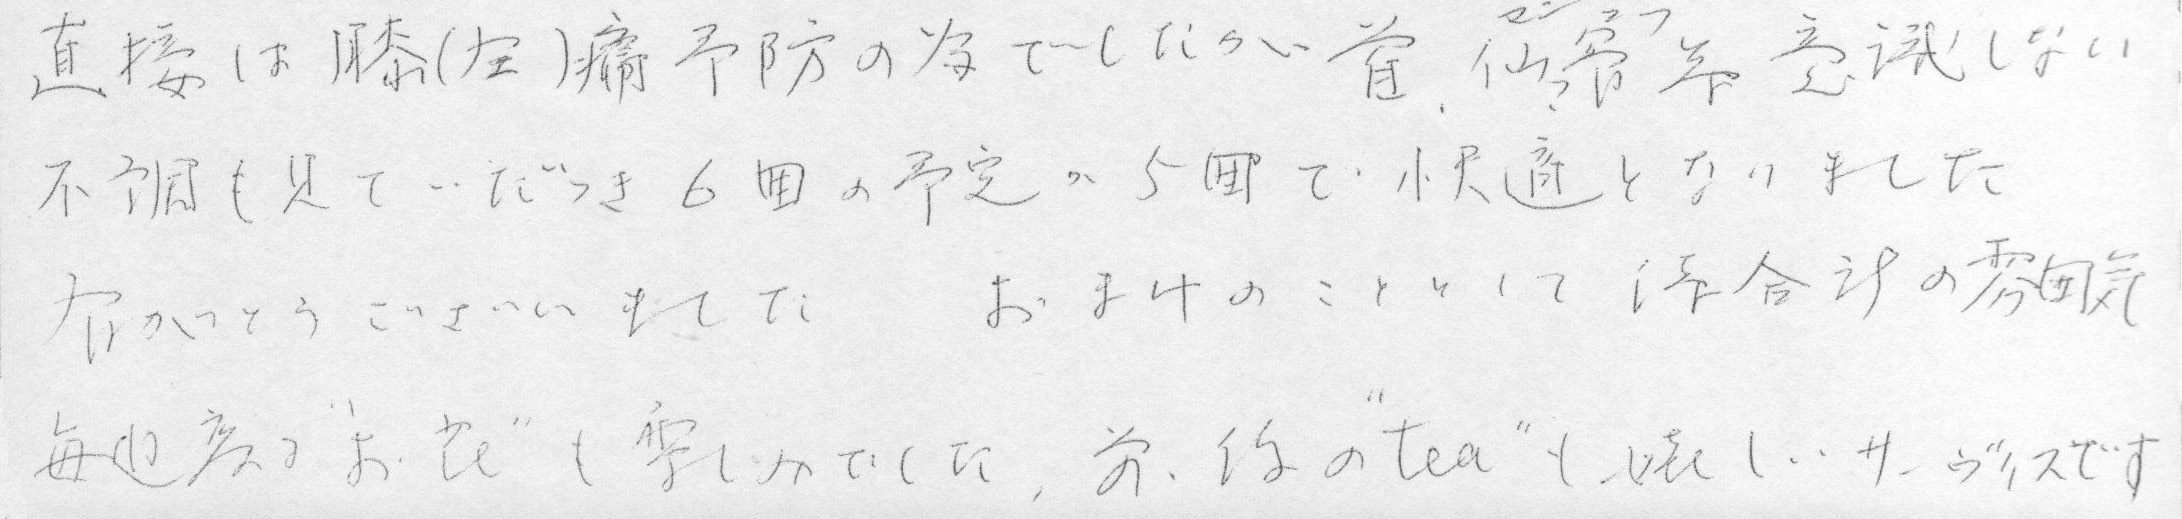 直接は膝(左)痛予防の為でしたが首、仙骨等意識しない
不調も見ていただき6回の予定が5回で快適となりました
ありがとうございました おまけのこととして 待合計の雰囲気
毎週変る"お花"も楽しみでした、前、後の"tea"も嬉しいサーヴィスです